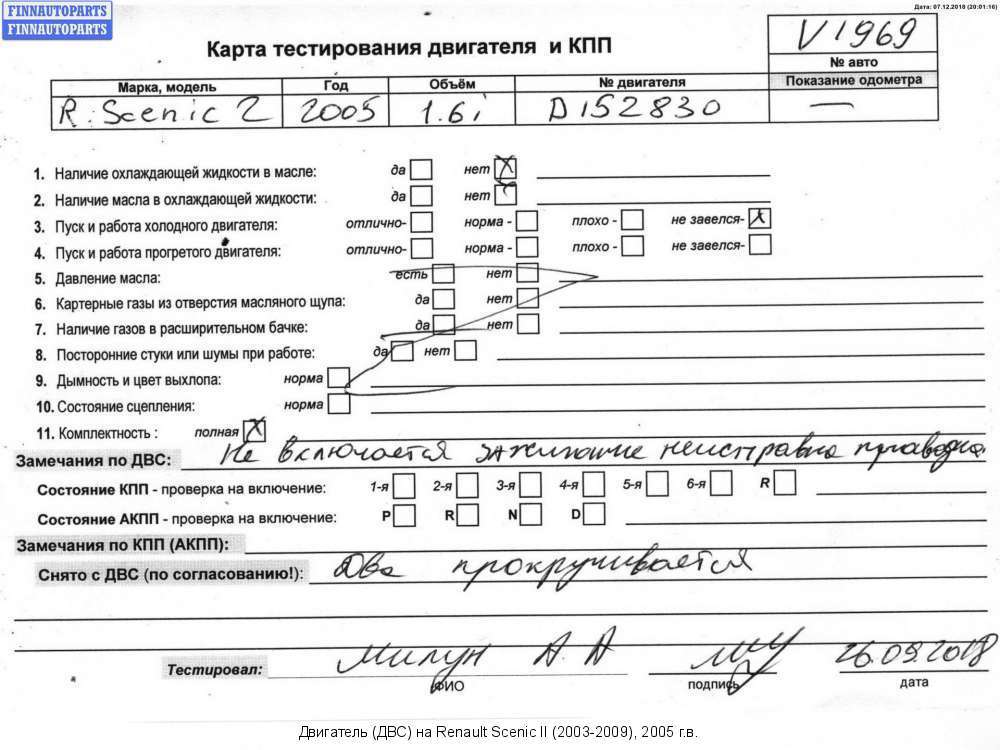 FINNAUTOPARTS
FINNAUTOPARTS
Дата: 07.12.2018 (20:01:16)
Карта тестирования двигателя и КПП
V1969
№ авто
Марка, модель Год Объём № двигателя Показание одометра
R. Scenic 2 2005 1.6i D152830 —
1. Наличие охлаждающей жидкости в масле: да нет X
2. Наличие масла в охлаждающей жидкости: да нет
3. Пуск и работа холодного двигателя: отлично- норма - плохо - не завелся- X
4. Пуск и работа прогретого двигателя: отлично- норма - плохо - не завелся-
5. Давление масла: есть нет
6. Картерные газы из отверстия масляного щупа: да нет
7. Наличие газов в расширительном бачке: да нет
8. Посторонние стуки или шумы при работе: да нет
9. Дымность и цвет выхлопа: норма
10. Состояние сцепления: норма
11. Комплектность : полная X
Замечания по ДВС: Не включается зажигание неисправна проводка
Состояние КПП - проверка на включение: 1-я 2-я 3-я 4-я 5-я 6-я R
Состояние АКПП - проверка на включение: P R N D
Замечания по КПП (АКПП):
Снято с ДВС (по согласованию!): Двс прокручивается
Тестировал: Милун А. А 26.09.2018
ФИО подпись дата
Двигатель (ДВС) на Renault Scenic II (2003-2009), 2005 г.в.